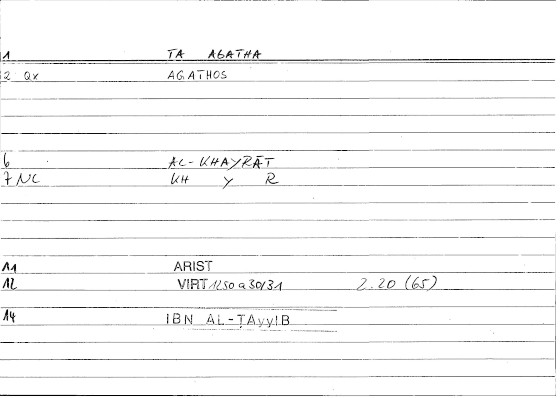 1 TA AGATHA
2 Qx AGATHOS
6 AL-KHAYRĀT
7 NC KH Y R
11 ARIST
12 VIRT 1250 a 30/31 2.20 (65)
14 IBN AL-ṬAyyIB